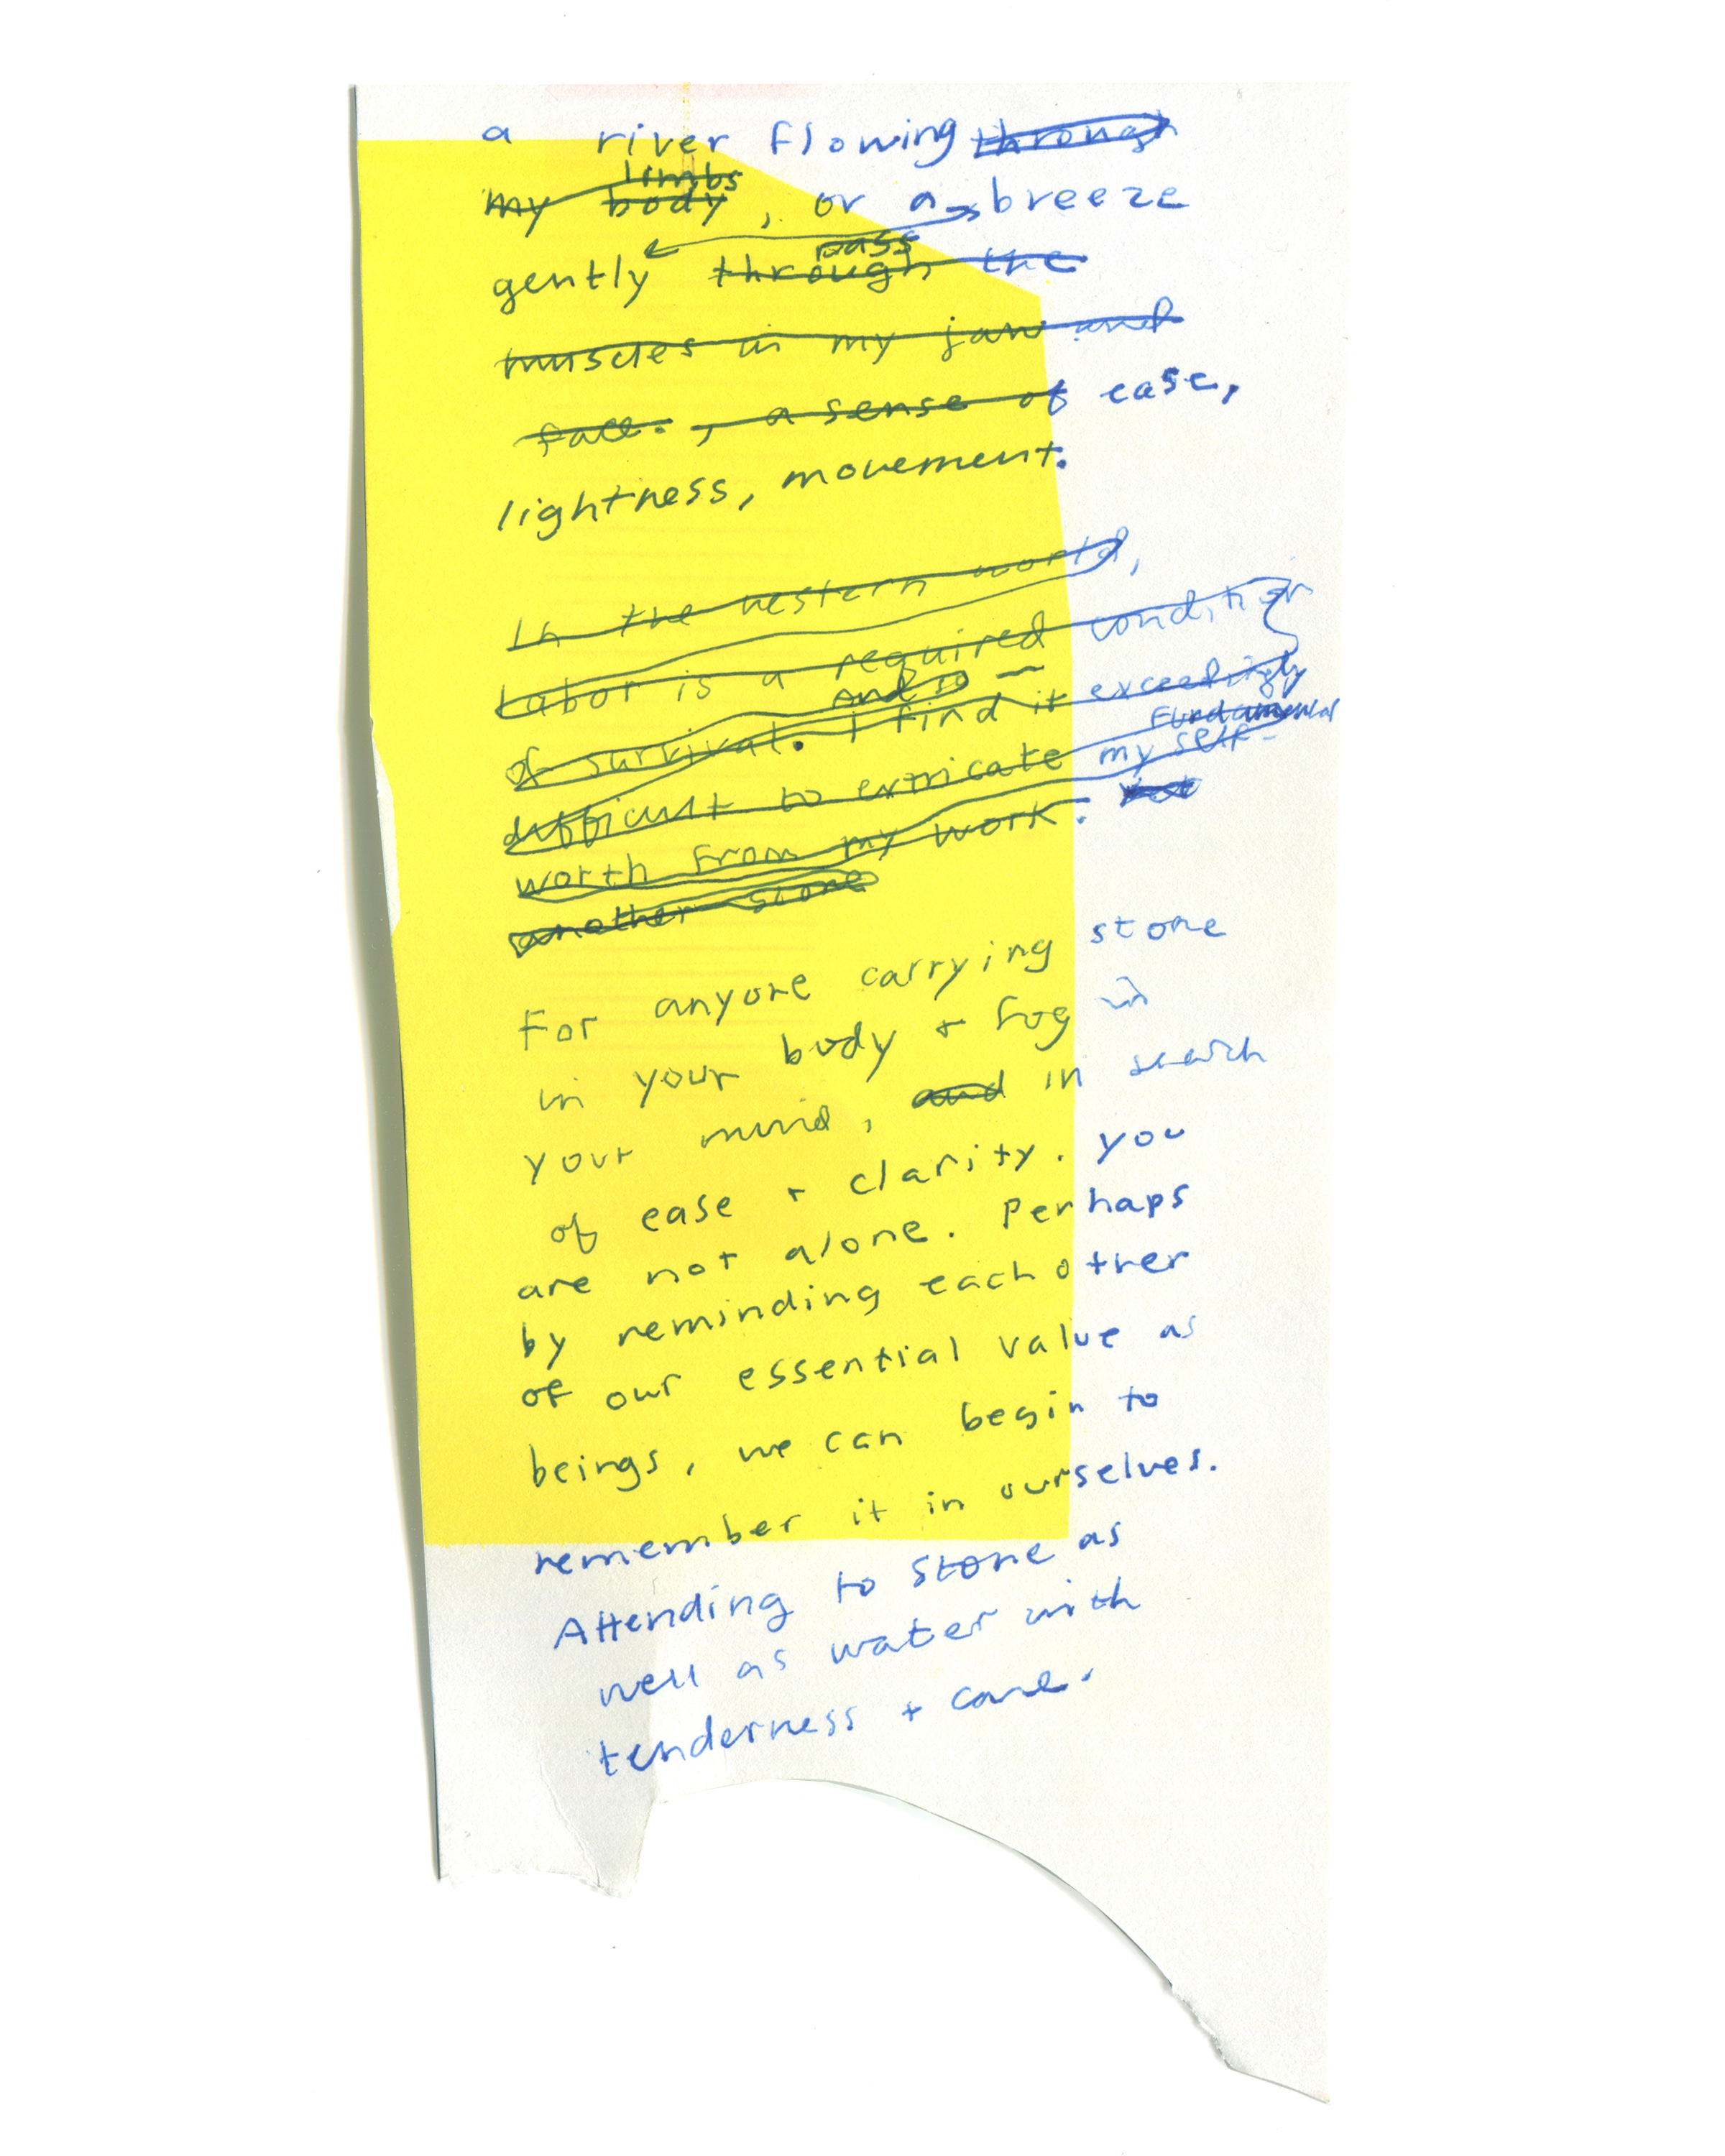 a river flowing through
limbs
my body, or a breeze
pass
gently through the
muscles in my jaw and
face. , a sense of ease,
lightness, movement.
In the western world,
Labor is a required condition
And so
of survival. I find it exceedingly
Fundamental
difficult to extricate my self-
worth from my work. but
another stone
For anyone carrying stone
in your body + fog in
your mind, and in search
of ease + clarity. you
are not alone. Perhaps
by reminding each other
of our essential value as
beings, we can begin to
remember it in ourselves.
Attending to stone as
well as water with
tenderness + care.